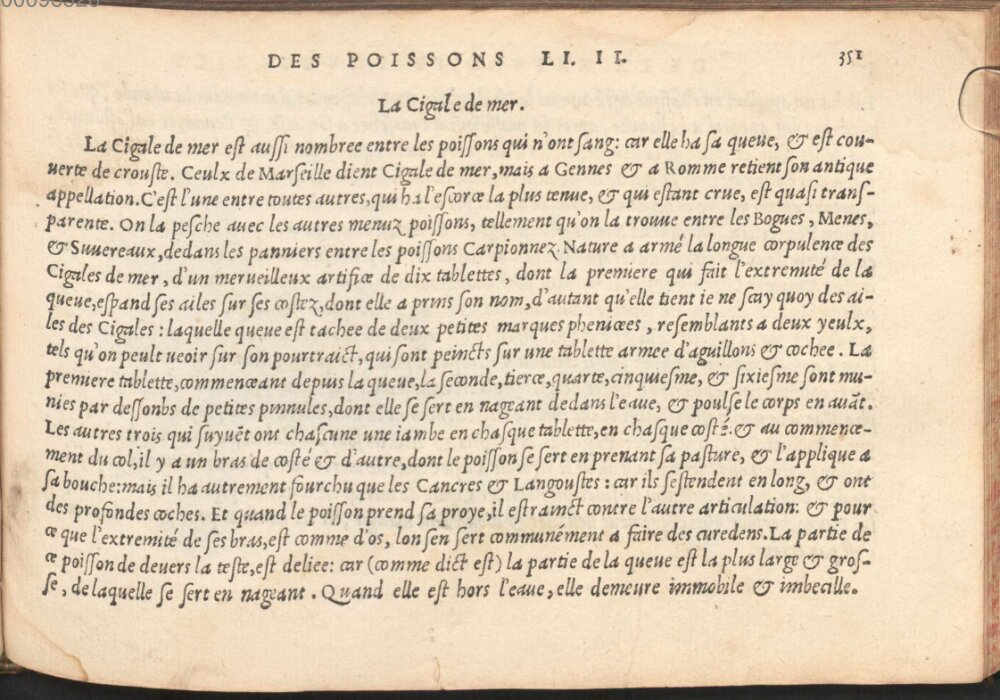 DES POISSONS LI. II. 351
La Cigale de mer.
La Cigale de mer est aussi nombree entre les poissons qui n'ont sang: car elle ha sa queue, & est cou-
uerte de crouste. Ceulx de Marseille dient Cigale de mer, mais a Gennes & a Romme retient son antique
appellation. C'est l'une entre toutes autres, qui ha l'escorce la plus tenue, & qui estant crue, est quasi trans-
parente. On la pesche auec les autres menuz poissons, tellement qu'on la trouue entre les Bogues, Menes,
& Suuereaux, dedans les panniers entre les poissons Carpionnez. Nature a armé la longue corpulence des
Cigales de mer, d'un merueilleux artifice de dix tablettes, dont la premiere qui fait l'extremité de la
queue, espand ses ailes sur ses costez, dont elle a prins son nom, d'autant qu'elle tient ie ne scay quoy des ai-
les des Cigales: laquelle queue est tachee de deux petites marques phenicees, resemblants a deux yeulx,
tels qu'on peult ueoir sur son pourtraict, qui sont peincts sur une tablette armee d'aguillons & cochee. La
premiere tablette, commenceant depuis la queue, la seconde, tierce, quarte, cinquiesme, & sixiesme sont mu-
nies par dessonbs de petites pinnules, dont elle se sert en nageant dedans l'eaue, & poulse le corps en auãt.
Les autres trois qui suyuẽt ont chascune une iambe en chasque tablette, en chasque costé: & au commence-
ment du col, il y a un bras de costé & d'autre, dont le poisson se sert en prenant sa pasture, & l'applique a
sa bouche: mais il ha autrement fourchu que les Cancres & Langoustes: car ils s'estendent en long, & ont
des profondes coches. Et quand le poisson prend sa proye, il estrainct contre l'autre articulation: & pour
ce que l'extremité de ses bras, est comme d'os, lon s'en sert communément a faire des curedens. La partie de
ce poisson de deuers la teste, est deliee: car (comme dict est) la partie de la queue est la plus large & gros-
se, de laquelle se sert en nageant. Quand elle est hors l'eaue, elle demeure immobile & imbecille.